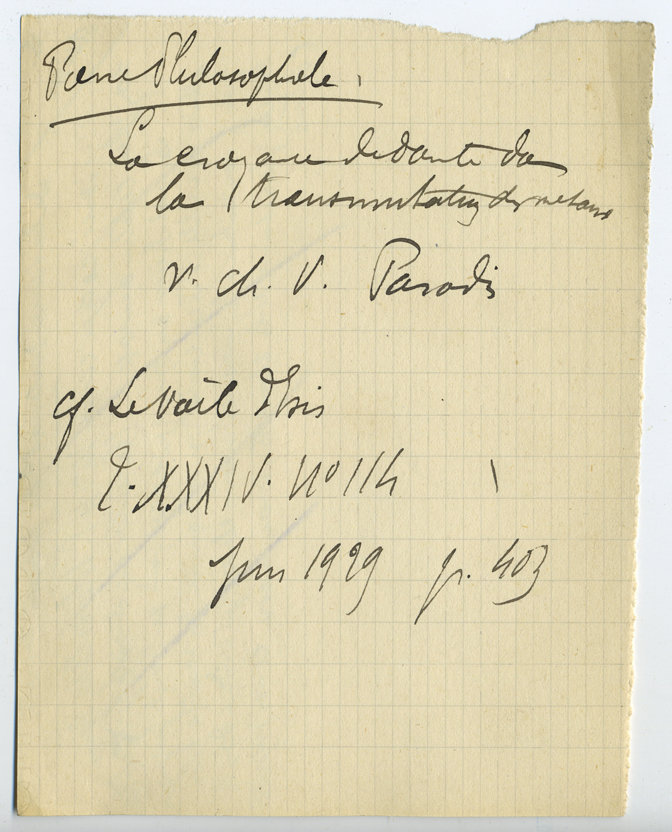 Pierre Philosophale.
La croyance de Dante dans
la transmutation des métaux
v. ch. V. Paradis
cf. Le Voile d'Isis
t. XXXIV. No 114
juin 1929 p. 403